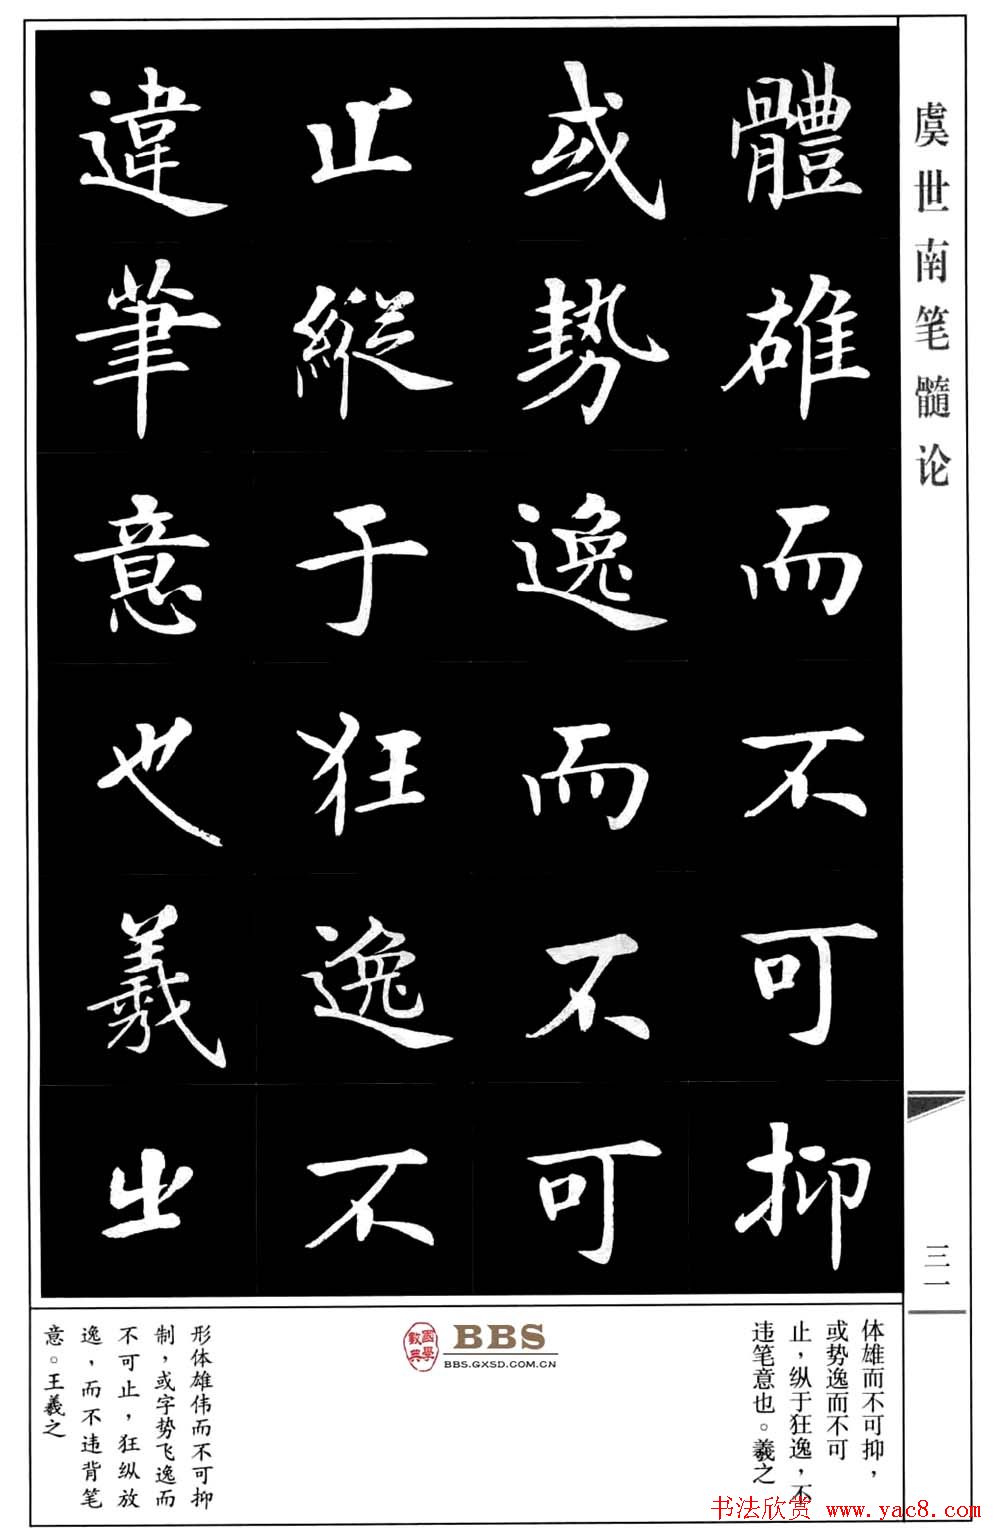 虞世南笔髓论
三一
體雄而不可抑
或勢逸而不可
止縱于狂逸不
違筆意也羲㞢
体雄而不可抑，
或势逸而不可
止，纵于狂逸，不
违笔意也。羲之
國學
數典
BBS
BBS.GXSD.COM.CN
形体雄伟而不可抑
制，或字势飞逸而
不可止，狂纵放
逸，而不违背笔
意。王羲之
书法欣赏 www.yac8.com